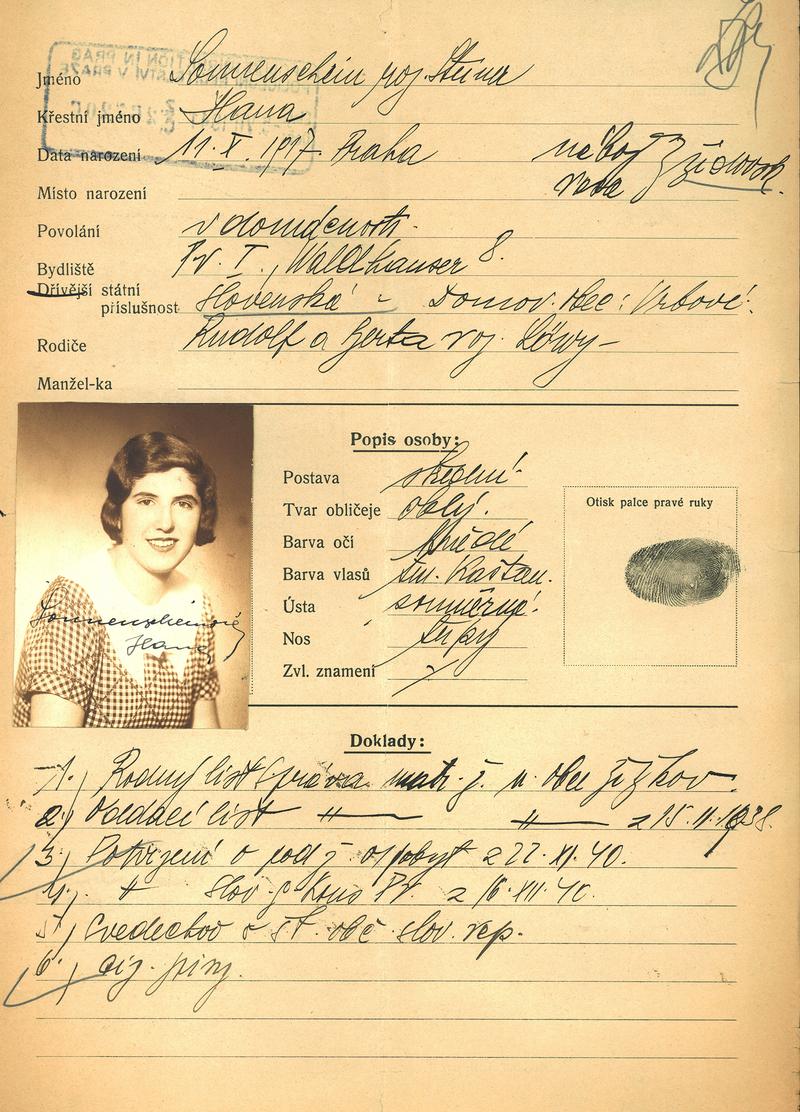 Jméno Sonnenschein roz. Steiner
Křestní jméno Hana
Data narození 11. X. 1917 Praha
Místo narození
Povolání v domácnosti.
Bydliště Pr. I., Waldhauser 8.
Dřívější státní
příslušnost Slovenská - Domov. obec: Vrbové.
Rodiče Rudolf a Gerta roz. Löwy
Manžel-ka
Popis osoby:
Postava
Tvar obličeje oblý.
Barva očí hnědé
Barva vlasů tm. Kaštan.
Ústa souměrná.
Nos
Zvl. znamení
Otisk palce pravé ruky
Sonnenscheinová
Hana
Doklady:
1.) Rodný list Správa matr. ž. n. obce Žižkov.
2.) Oddací list " " z 15. II. 1938.
3.) Potvrzení o pobyt z 22. XI. 40.
4.) " slov. Pr. z 16. XII. 40.
5.) o st. obč. slov. rep.
6.)